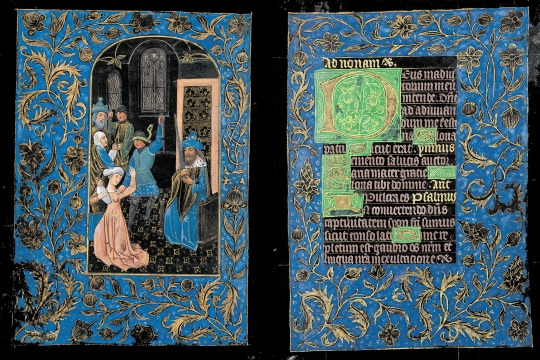 Ad nonam
Deus in adiu
torium meu
intende. Dne
ad adiuuan
dum me festi
na Gloria
patri Sicut erat. ymnus
Memento salutis auctor
Maria mater gracie
Gloria tibi domine. Ant
Pulcra es Psalmus
In conuertendo dns
captiuitatem syon facti sumus
sicut consolati Tunc re
pletum est gaudio os nrm et
lingua nra in exultacione